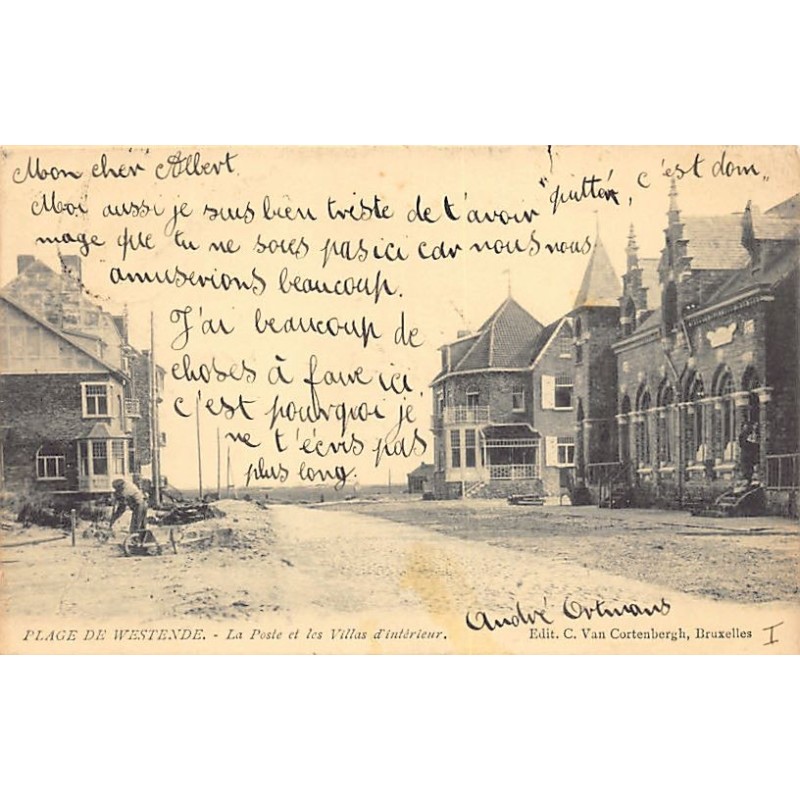 Mon cher Albert.
Moi aussi je suis bien triste de t'avoir "quitté", c'est dom„
mage que tu ne soies pas ici car nous nous
amuserions beaucoup.
J'ai beaucoup de
choses à faire ici.
c'est pourquoi je
ne t'écris pas
plus long.
André Ortmans
PLAGE DE WESTENDE. - La Poste et les Villas d'intérieur.
Edit. C. Van Cortenbergh, Bruxelles I